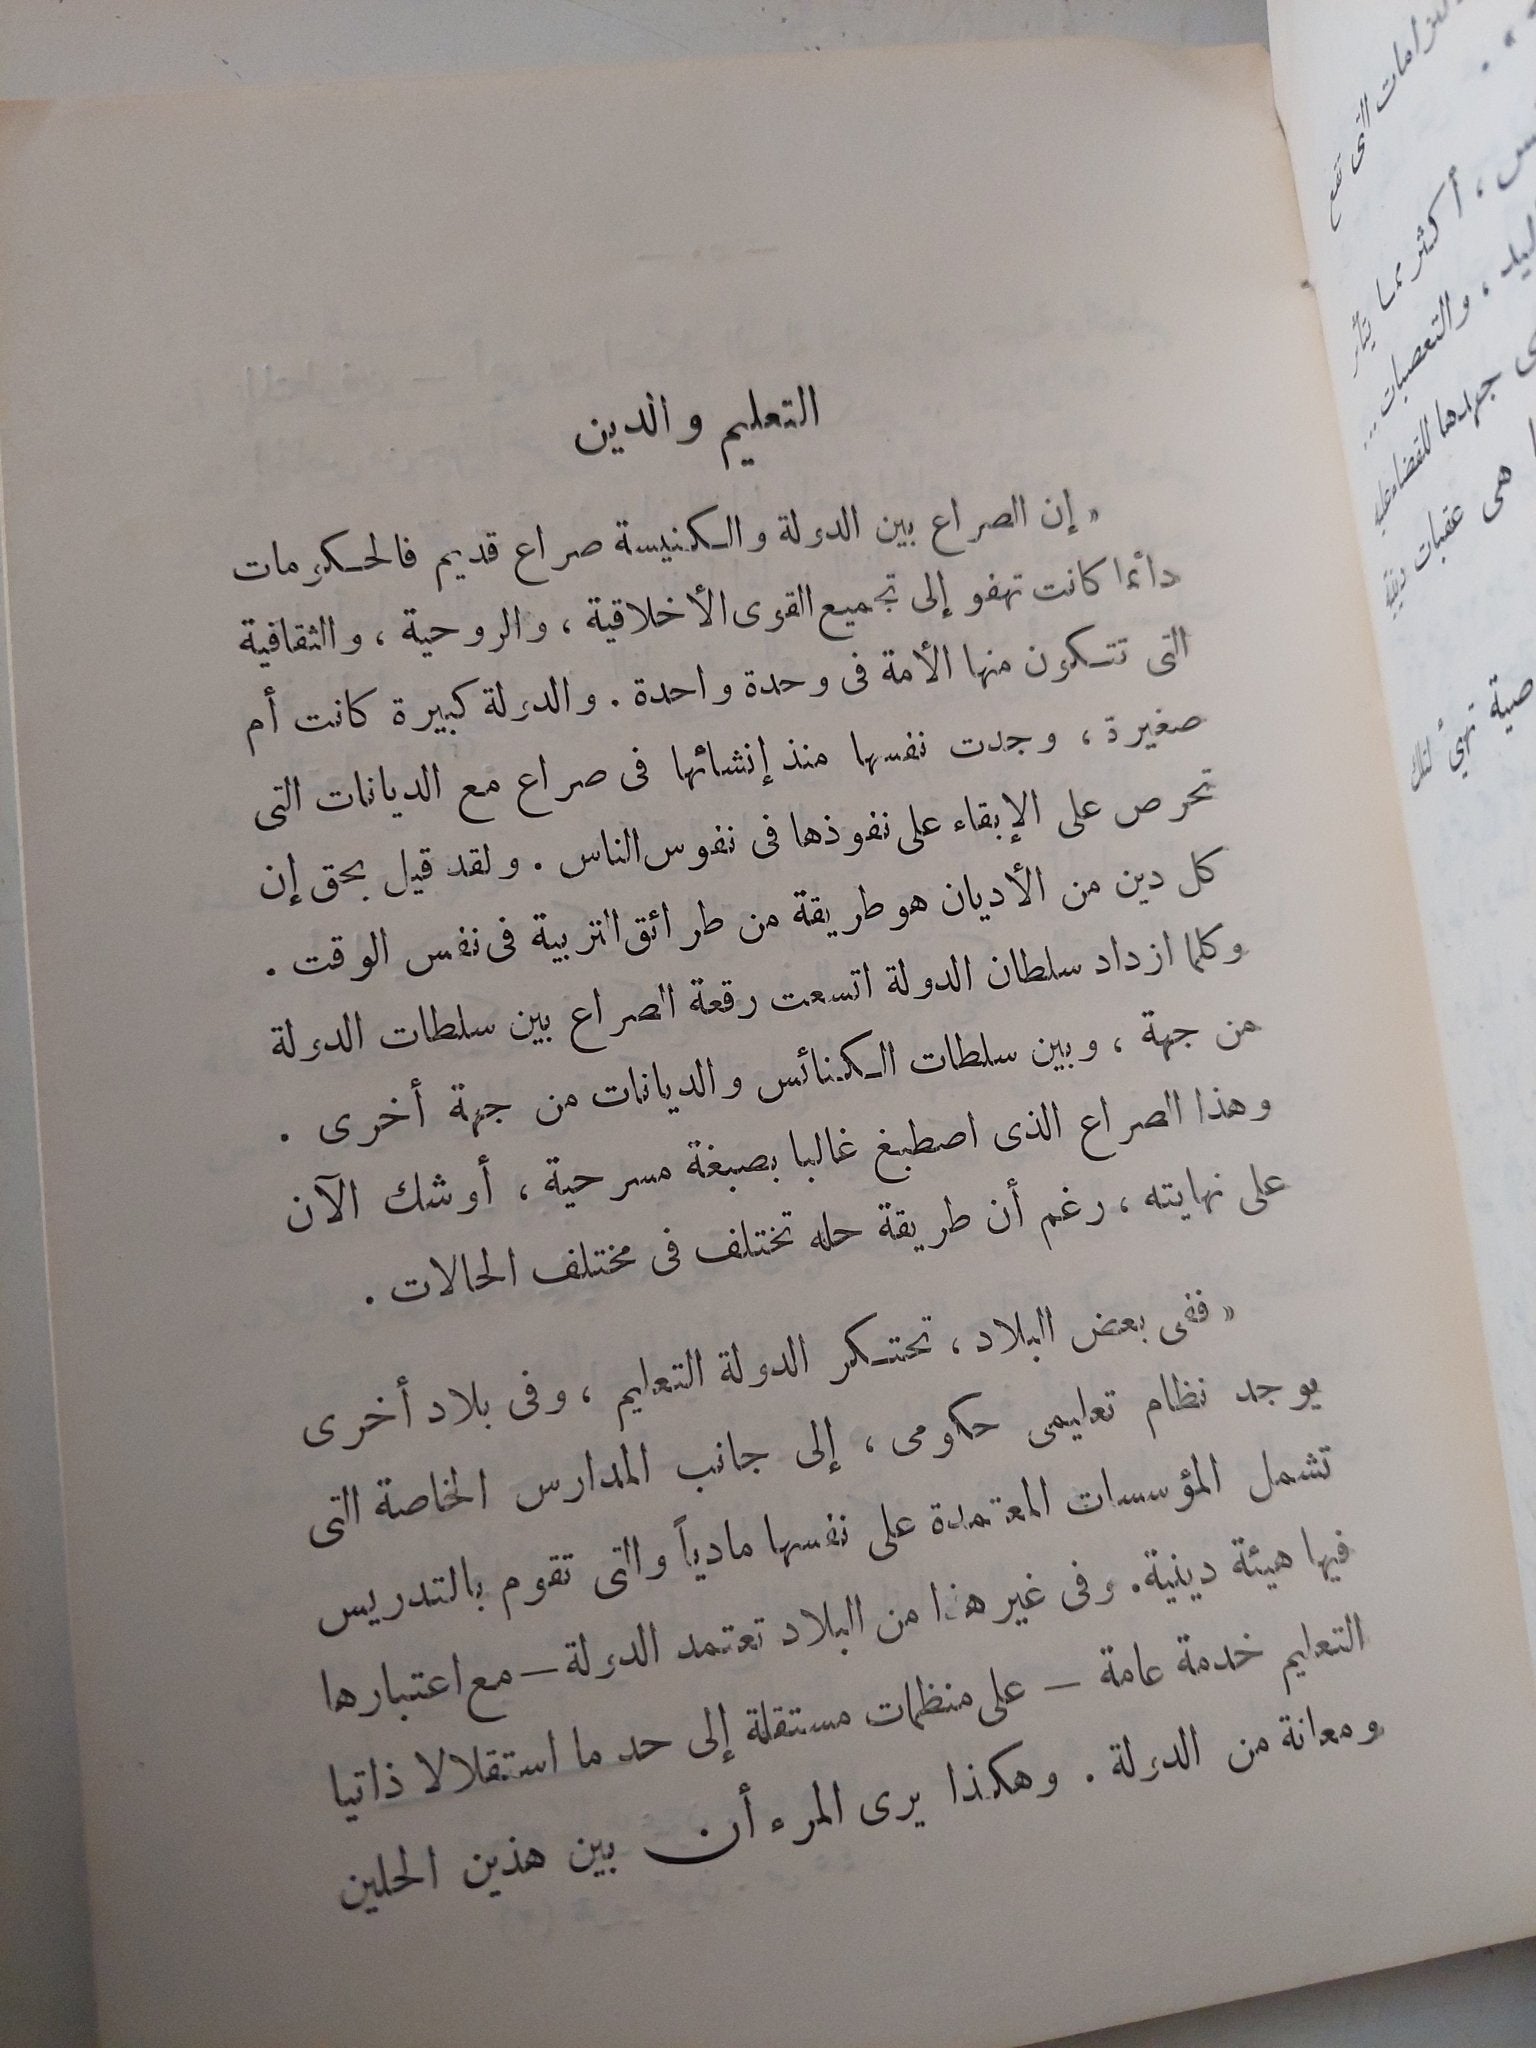 التعليم والدين
« إن الصراع بين الدولة والكنيسة صراع قديم فالحكومات
دائما كانت تهفو إلى تجميع القوى الأخلاقية ، والروحية ، والثقافية
التى تتكون منها الأمة فى وحدة واحدة . والدولة كبيرة كانت أم
صغيرة ، وجدت نفسها منذ إنشائها فى صراع مع الديانات التى
تحرص على الإبقاء على نفوذها فى نفوس الناس . ولقد قيل بحق إن
كل دين من الأديان هو طريقة من طرائق التربية فى نفس الوقت .
وكلما ازداد سلطان الدولة اتسعت رقعة الصراع بين سلطات الدولة
من جهة ، وبين سلطات الكنائس والديانات من جهة أخرى .
وهذا الصراع الذى اصطبغ غالبا بصبغة مسرحية ، أوشك الآن
على نهايته ، رغم أن طريقة حله تختلف فى مختلف الحالات .
« ففى بعض البلاد ، تحتكر الدولة التعليم ، وفى بلاد أخرى
يوجد نظام تعليمى حكومى ، إلى جانب المدارس الخاصة التى
تشمل المؤسسات المعتمدة على نفسها مادياً والتى تقوم بالتدريس
فيها هيئة دينية. وفى غير هذا من البلاد تعتمد الدولة – مع اعتبارها
التعليم خدمة عامة – على منظمات مستقلة إلى حد ما استقلالا ذاتيا
ومعانة من الدولة . وهكذا يرى المرء أن بين هذين الحلين
التى تقع
، أكثر مما يتأثر
، والتعصبات...
جهدها للقضاء عليه
هى عقبات
تهيئ لتلك